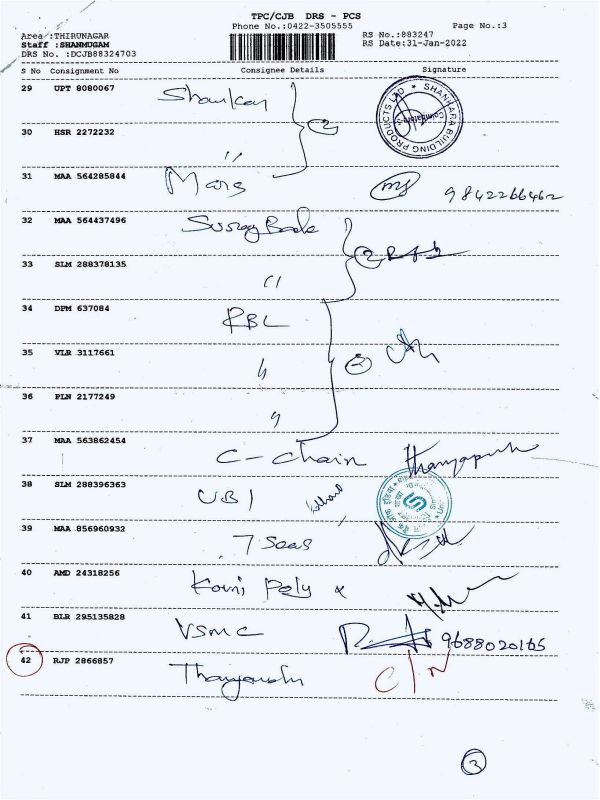 TPC/CJB DRS - PCS
Phone No.:0422-3505555
Page No.:3
Area :THIRUNAGAR
Staff :SHANMUGAM
DRS No. :DCJB88324703
RS No.:883247
RS Date:31-Jan-2022
S No Consignment No Consignee Details Signature
29 UPT 8080067 Shankar
SHANKARA BUILDING PRODUCTS LTD
Coimbatore
30 HSR 2272232 "
2
31 MAA 564285844 Mars 9842266462
32 MAA 564437496
2
33 SLM 288378135 "
34 DPM 637084 RBL
35 VLR 3117661 "
36 PLN 2177249 "
37 MAA 563862454 C-Chain
38 SLM 288396363 UBI
39 MAA 856960932 7 Seas
40 AMD 24318256 Poly
41 BLR 295135828 VSMC 9688020165
42 RJP 2866857 C/N
3